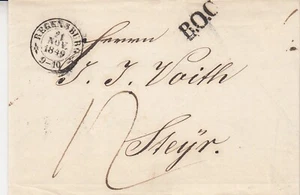 REGENSBURG
21
NOV.
1849
9-10
B.O.C
Herrn
J. J. Voith
12
Steÿr.